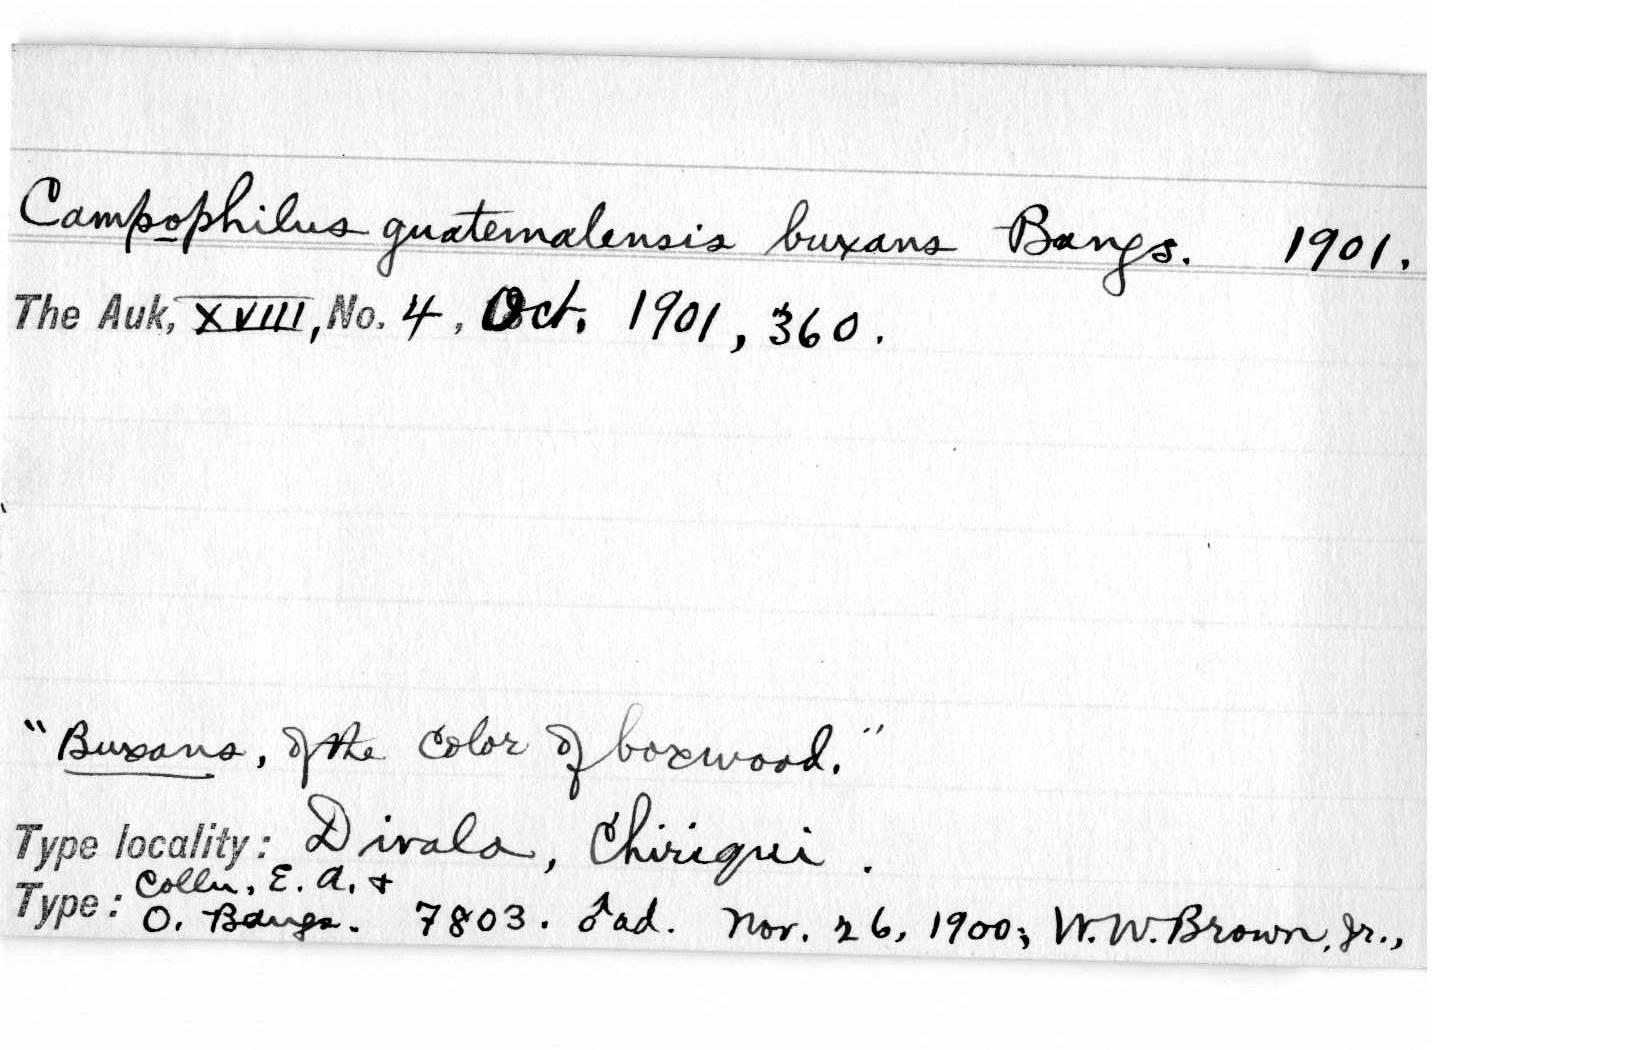 Campophilus guatemalensis buxans Bangs. 1901.
The Auk, XVIII, No. 4, Oct. 1901, 360.
"Buxans, of the color of boxwood."
Type locality: Divala, Chiriqui.
Colln. E. A. +
Type: O. Bangs. 7803. ♂ ad. Nov. 26, 1900; W. W. Brown, Jr.,